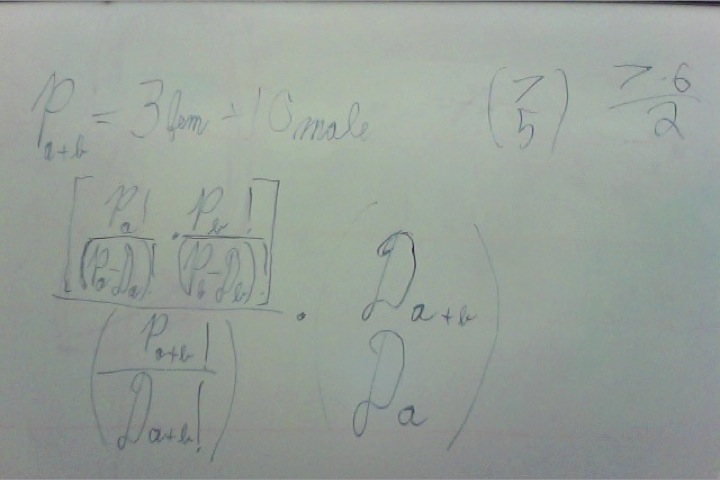 P_{a+b} = 3 fem + 10 male (7 5) 7·6/2
[P_a!/(P_a-D_a)! · P_b!/(P_b-D_b)!]
(P_{a+b}!/D_{a+b}!) · (D_{a+b} D_a)